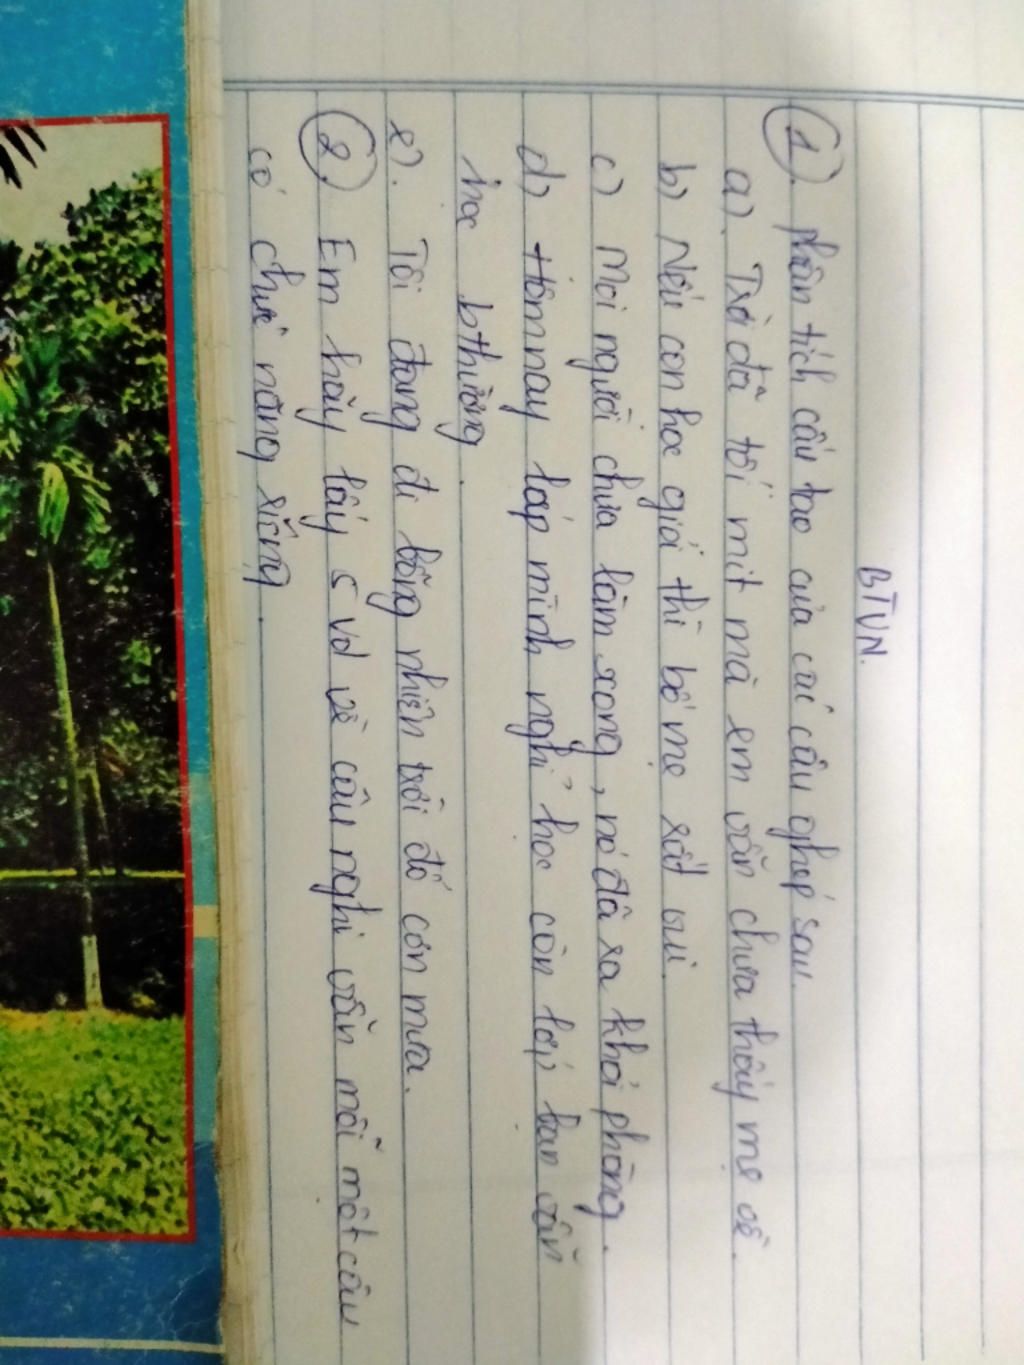 BTVN.
1). Phân tích cấu tạo của các câu ghép sau.
a). Trời đã tối mịt mà em vẫn chưa thấy mẹ về.
b) Nếu con học giỏi thì bố mẹ rất vui.
c) Mọi người chưa làm xong, nó đã ra khỏi phòng.
d) Hôm nay lớp mình nghỉ học còn lớp bạn vẫn
học bthường.
e). Tôi đang đi bỗng nhiên trời đổ cơn mưa.
2. Em hãy lấy 5 vd về câu nghi vấn mỗi một câu
có chức năng riêng.